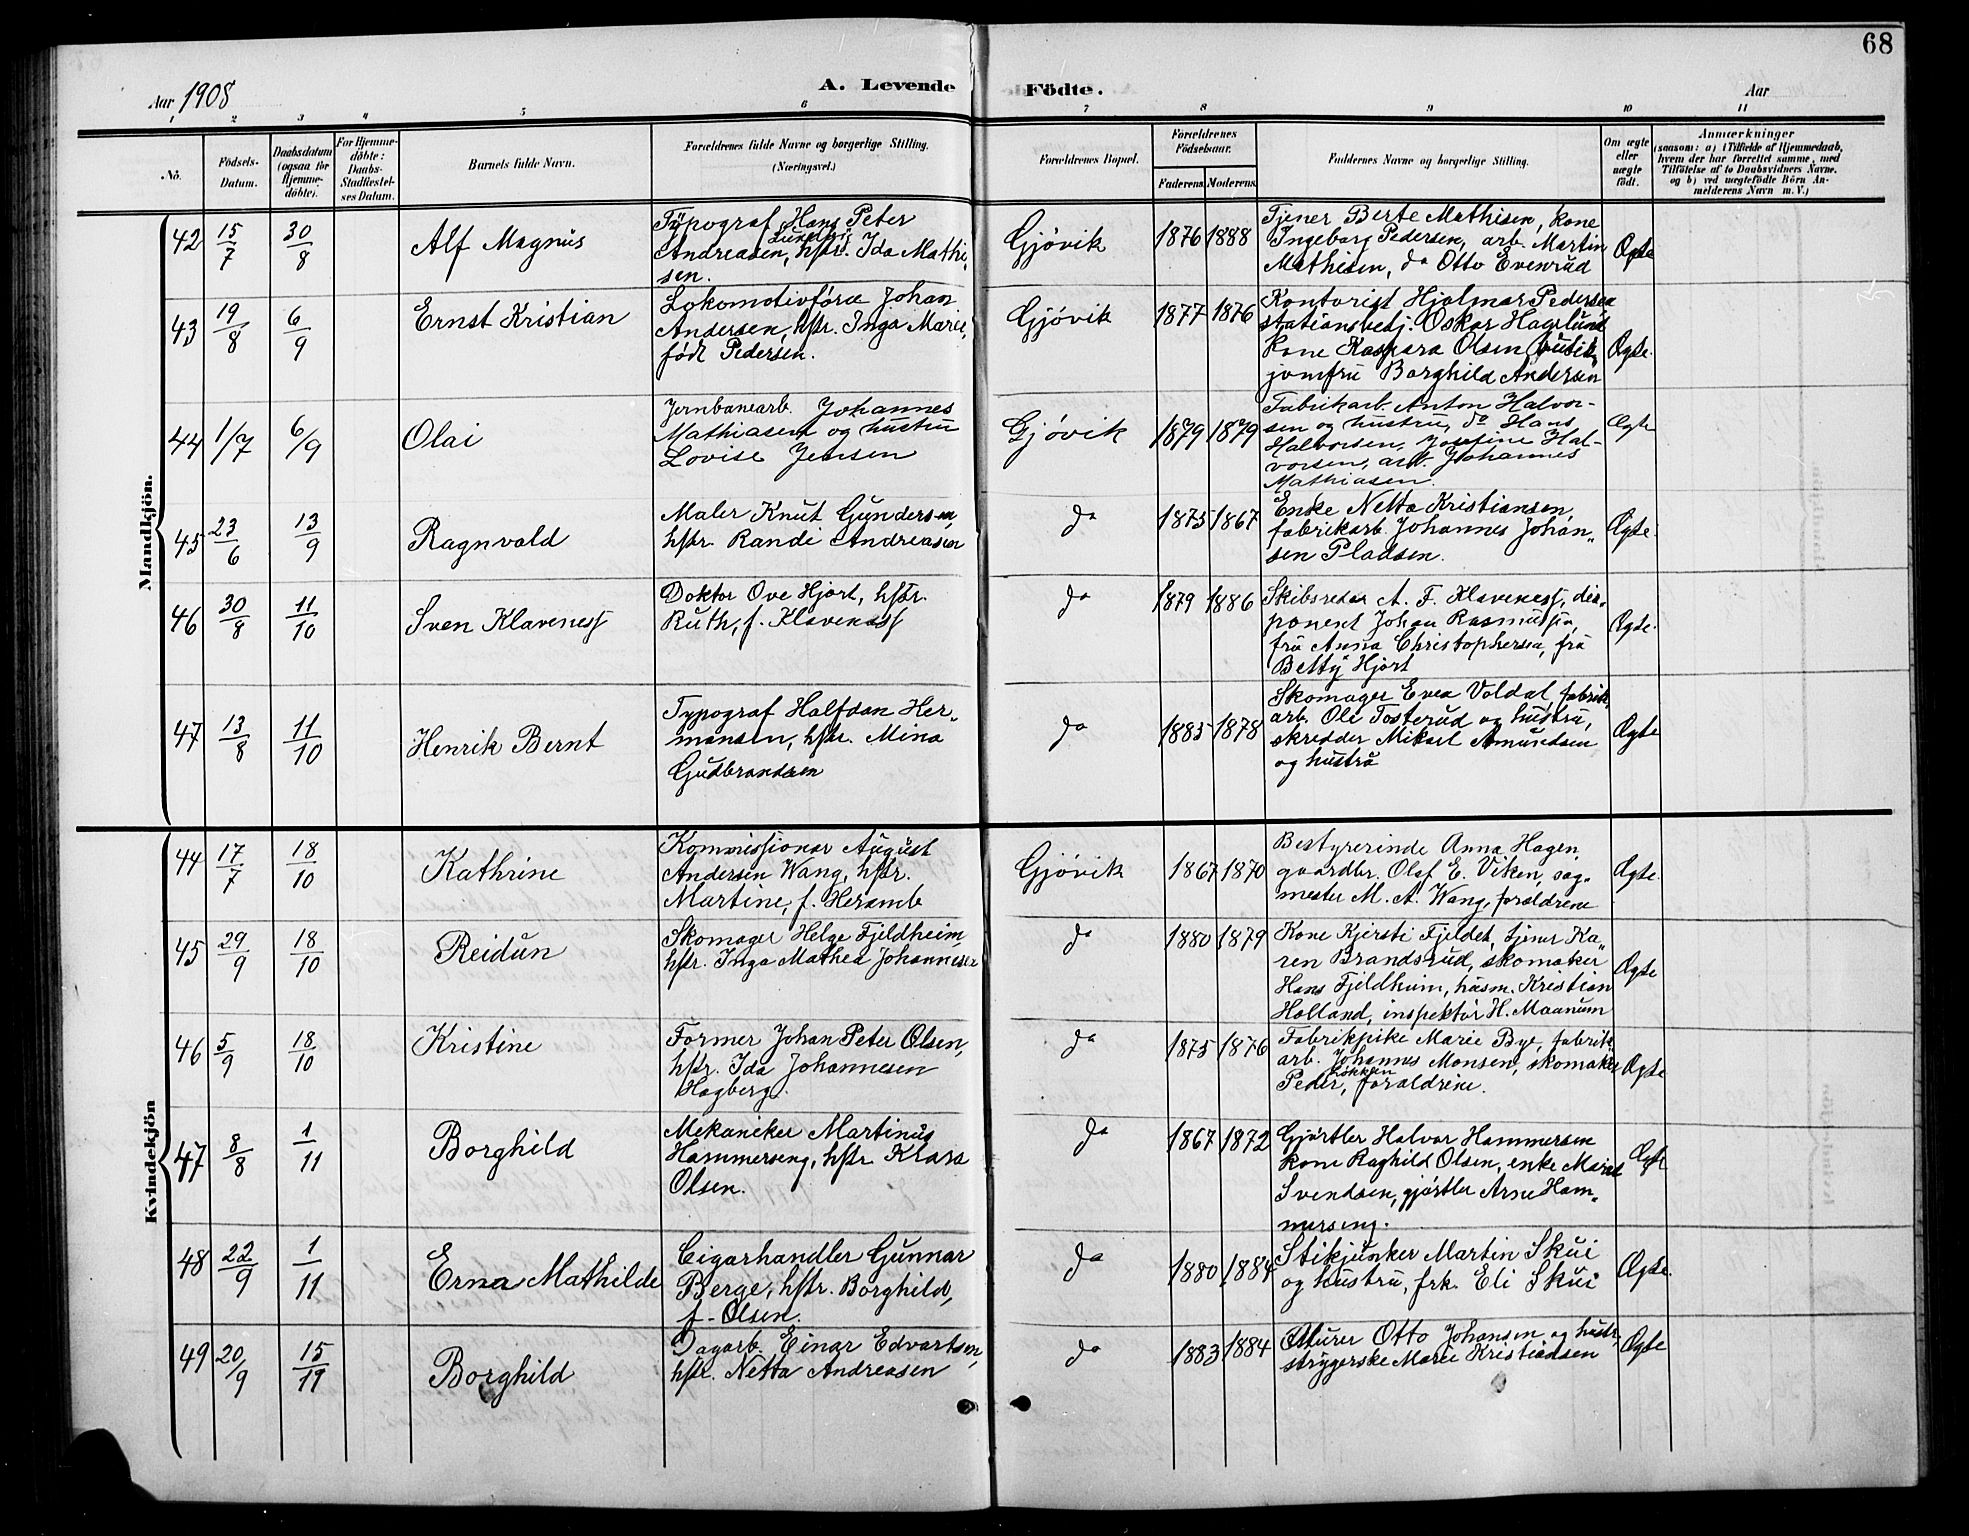 68
Aar 1908
A. Levende Födte.
Aar
1 2 3 4 5 6 7 8 9 10 11
No.
Födsels-
Datum.
Daabsdatum
(ogsaa for
Hjemme-
döbte).
For Hjemme-
döbte:
Daabs-
Stadfæstel-
ses Datum.
Barnets fulde Navn.
Forældrenes fulde Navne og borgerlige Stilling.
(Næringsvei.)
Forældrenes Bopæl.
Forældrenes
Födselsaar.
Faderens. Moderens.
Faddernes Navne og borgerlige Stilling.
Om ægte
eller
uægte
födt.
Anmærkninger
(saasom: a) i Tilfælde af Hjemmedaab,
hvem der har forrettet samme, med
Tilföielse af to Daabsvidners Navne,
og b) ved uægtefödte Börn An-
melderens Navn m. V.)
Mandkjön.
42 15/7 30/8 Alf Magnus
Typograf Hans Peter
Andreasen, hstr. Ida Mathi-
sen.
Gjövik 1876 1888
Tjener Berte Mathisen, kone
Ingeborg Pedersen, arb. Martin
Mathisen, do Otto Evenrud
Ægte
43 19/8 6/9 Ernst Kristian
Lokomotivförer Johan
Andersen, hstr. Inga Marie,
född Pedersen.
Gjövik 1877 1876
Kontorist Hjalmar Pedersen
stationsbetj. Oskar Haglund
kone Kaspara Olsen, butik-
jomfru Borghild Andersen
Ægte.
44 1/7 6/9 Olai
Jernbanearb. Johannes
Mathiasen og hustru
Lovise Jensen
Gjövik 1879 1879
Fabrikarb. Anton Halvor-
sen og hustru, do Hans
Halvorsen, Josefine Hal-
vorsen, arb. Johannes
Mathiasen.
Ægte
45 23/6 13/9 Ragnvald
Maler Knut Gundersen,
hstr. Randi Andreasen
do 1875 1867
Enke Netta Kristiansen,
fabrikarb. Johannes Johan-
sen Pladsen.
Ægte.
46 30/8 11/10 Sven Klaveness
Doktor Ove Hjort, hstr.
Ruth, f. Klaveness
do 1879 1886
Skibsreder A. F. Klaveness, dis-
ponent Johan Rasmussen,
fru Anna Christophersen, fru
Betty Hjort
Ægte.
47 13/8 11/10 Henrik Bernt
Typograf Halfdan Her-
mansen, hstr. Mina
Gudbrandsen
do 1885 1878
Skomager Even Voldal, fabrik-
arb. Ole Tosterud og hustru,
skredder Mikael Amundsen
og hustru
Ægte
Kvindekjön
44 17/7 18/10 Kathrine
Kommissionær August
Andersen Wang, hstr.
Martine, f. Heramb
Gjövik 1867 1870
Bestyrerinde Anna Hagen,
gaardbr. Olaf E. Viken, sag-
mester M. A. Wang, forældrene
Ægte.
45 29/9 18/10 Reidun
Skomager Helge Fjeldheim,
hstr. Inga Mathea Johannesen
do 1880 1879
Kone Kjersti Fjeldet, tjener Ka-
ren Brandsrud, skomaker
Hans Fjeldheim, husm. Kristian
Holland, inspektör H. Maanum
Ægte
46 5/9 18/10 Kristine
Former Johan Peter Olsen,
hstr. Ida Johannesen
Hagberg.
do 1875 1876
Fabrikpike Marie Bye, fabrik-
arb. Johannes Monsen, skomaker
Peder Løkken, forældrene.
Ægte
47 8/8 1/11 Borghild
Mekaniker Martinus
Hammerseng, hstr Klara
Olsen.
do 1867 1872
Gjørtler Halvor Hammerseng
kone Raghild Olsen, enke Maria
Svendsen, gjørtler Arne Ham-
merseng.
Ægte
48 22/9 1/11 Erna Mathilde
Cigarhandler Gunnar
Berge, hstr. Borghild,
f. Olsen.
do 1880 1884
Stikjunker Martin Skui
og hustru, frk. Eli Skui
Ægte.
49 20/9 15/11 Borghild
Dagarb. Einar Edvartsen,
hstr. Netta Andreasen
do 1883 1884
Murer Otto Johansen og hustr.
strygerske Marie Kristiansen
Ægte